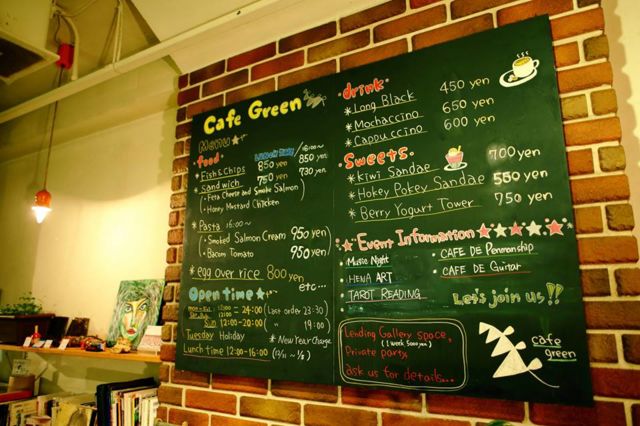 Cafe Green
Menu
food
LUNCH TIME / 16:00~
* Fish & Chips 850 yen 850 yen
* Sandwich 750 yen 930 yen
(• Feta Cheese and Smoke Salmon
• Honey Mustard Chicken)
* Pasta 16:00~
(• Smoked Salmon Cream 950 yen
• Bacon Tomato 950 yen)
* egg over rice 800 yen
etc...
Open time
24:00 (Last order 23:30)
Sun 12:00-20:00 ( " 19:00)
Tuesday Holiday * New Year Charge
Lunch time 12:00-16:00
• drink •
* Long Black 450 yen
* Mochaccino 650 yen
* Cappuccino 600 yen
• Sweets •
* Kiwi Sandae 700 yen
* Hokey Pokey Sandae 550 yen
* Berry Yogurt Tower 750 yen
Event Information
• Music Night • CAFE DE Penmanship
• HENA ART • CAFE DE Guitar
• TAROT READING Let's join us!!
Lending Gallery space,
(1 week 5000 yen)
Private party
ask us for details...
cafe
green